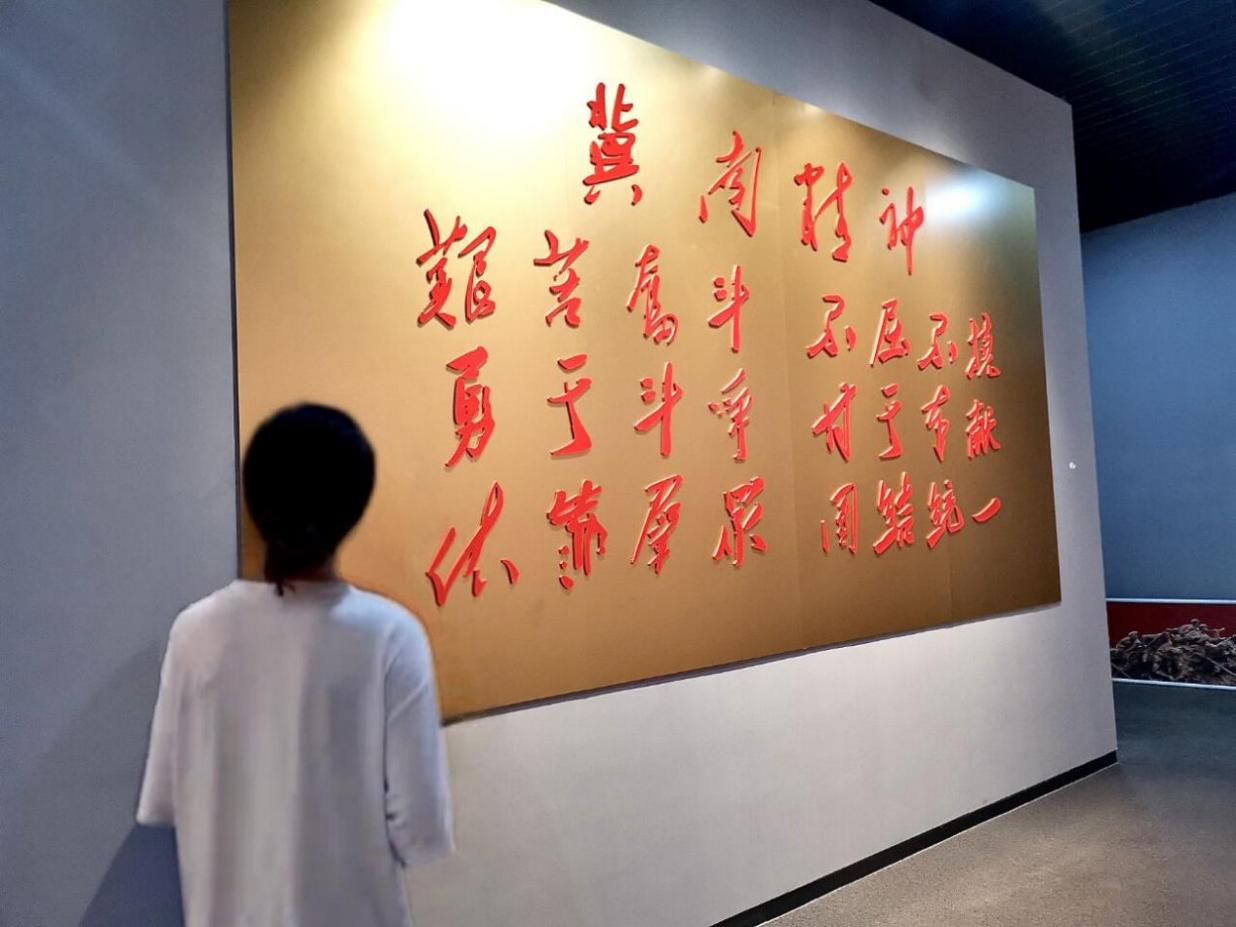 冀南精神
艱苦奮斗 不屈不挠
勇于斗争 甘于奉献
依靠群眾 团结统一